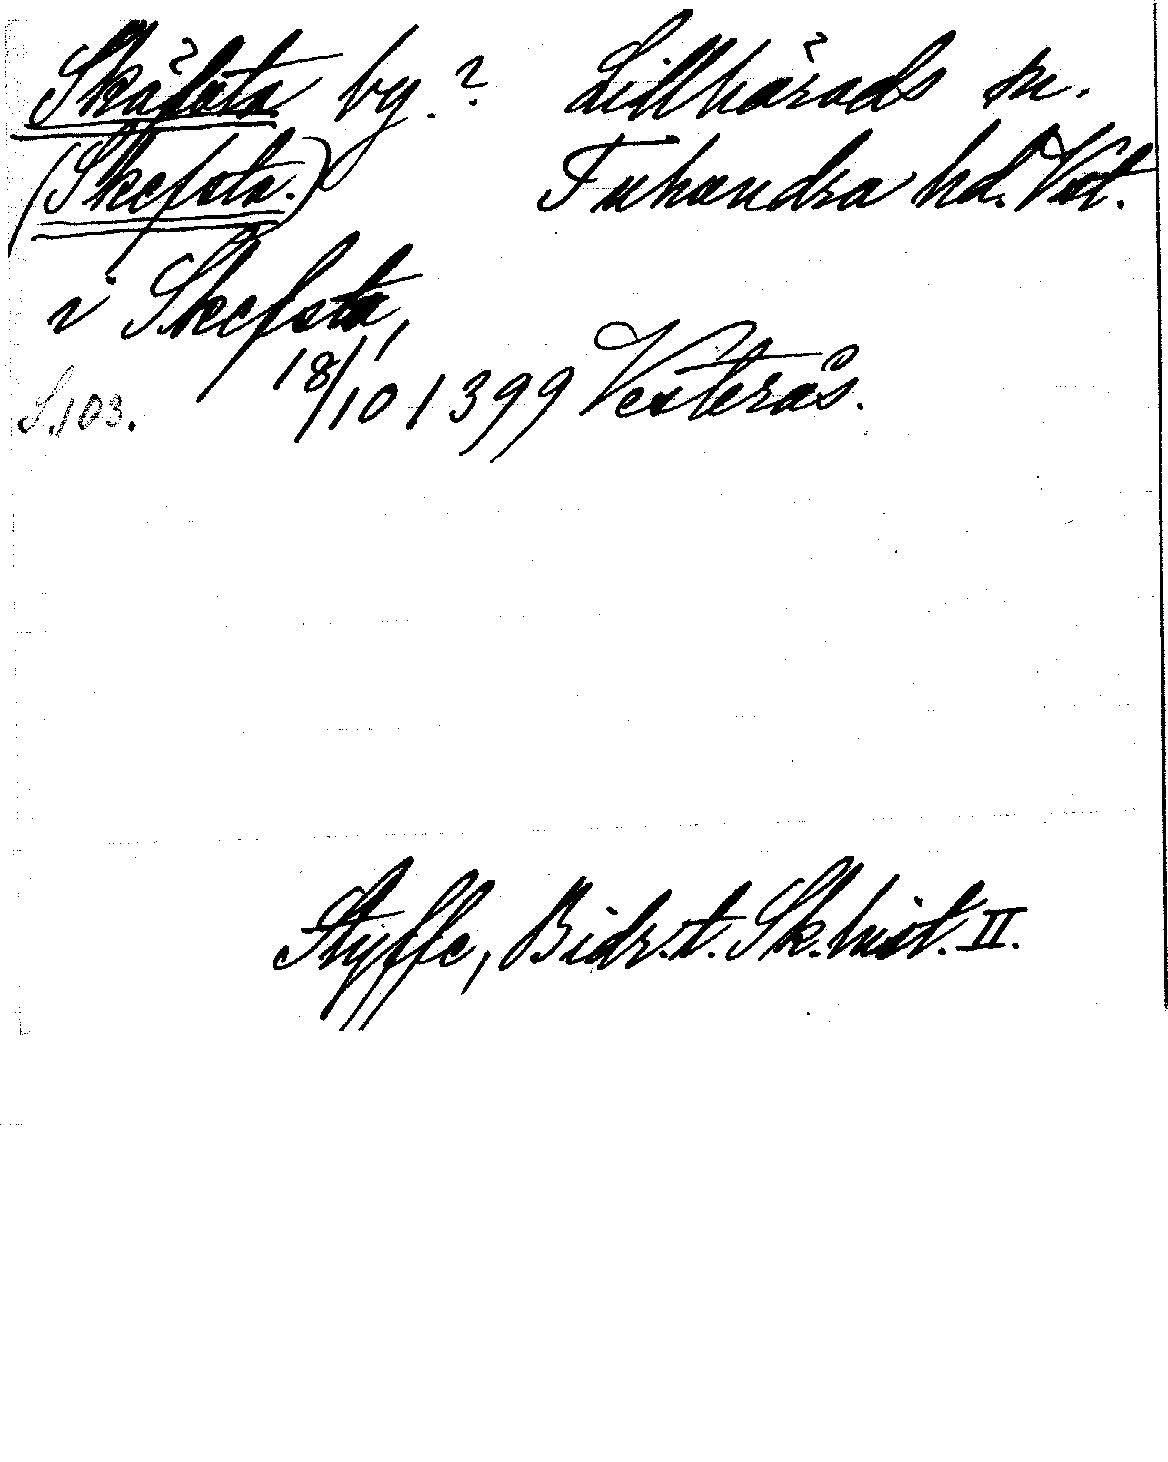 Skäfsta by.? Lillhärads sn.
(Skefsta.) Tuhundra hd. Vstl.
i Skefsta,
S.103. 18/10 1399 Vesterås.
Styffe, Bidr. t. Sk. hist. II.